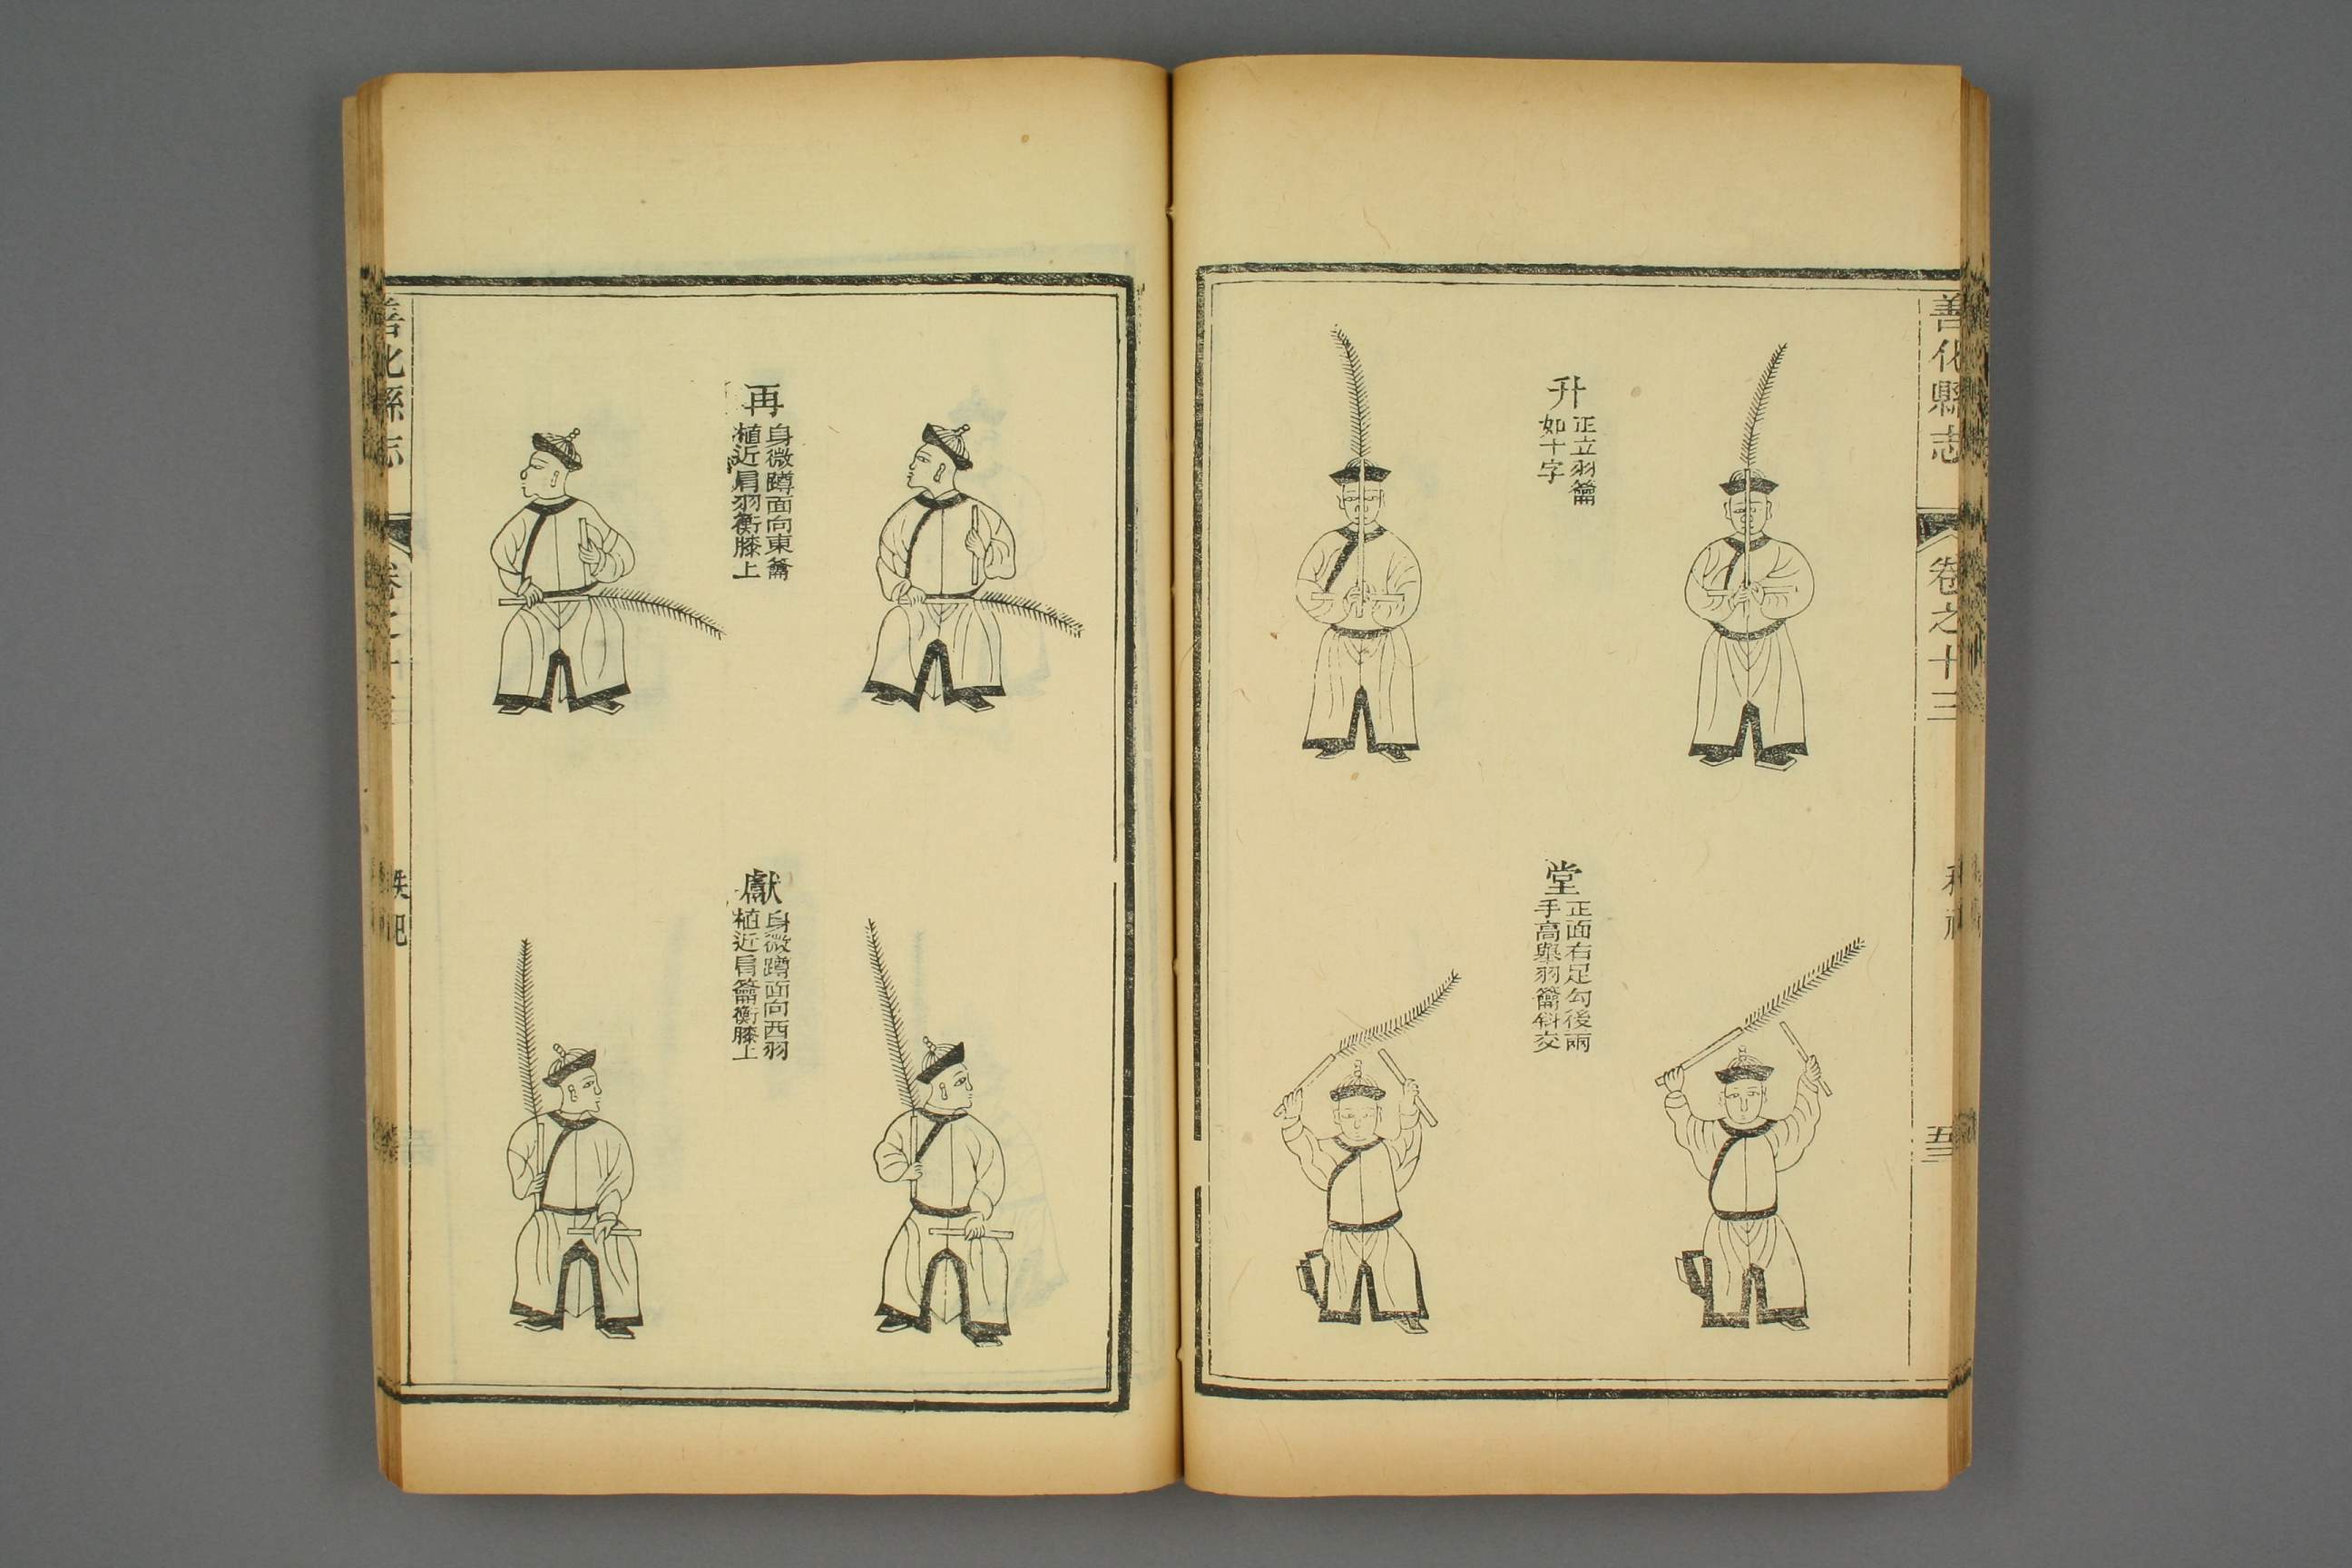 善化縣志
卷之十三
升
正立羽籥
如十字
堂
正面右足勾後兩
手高舉羽籥斜交
再
身微蹲面向東籥
植近肩羽衡膝上
獻
身微蹲面向西羽
植近肩籥衡膝上
善化縣志
秩祀